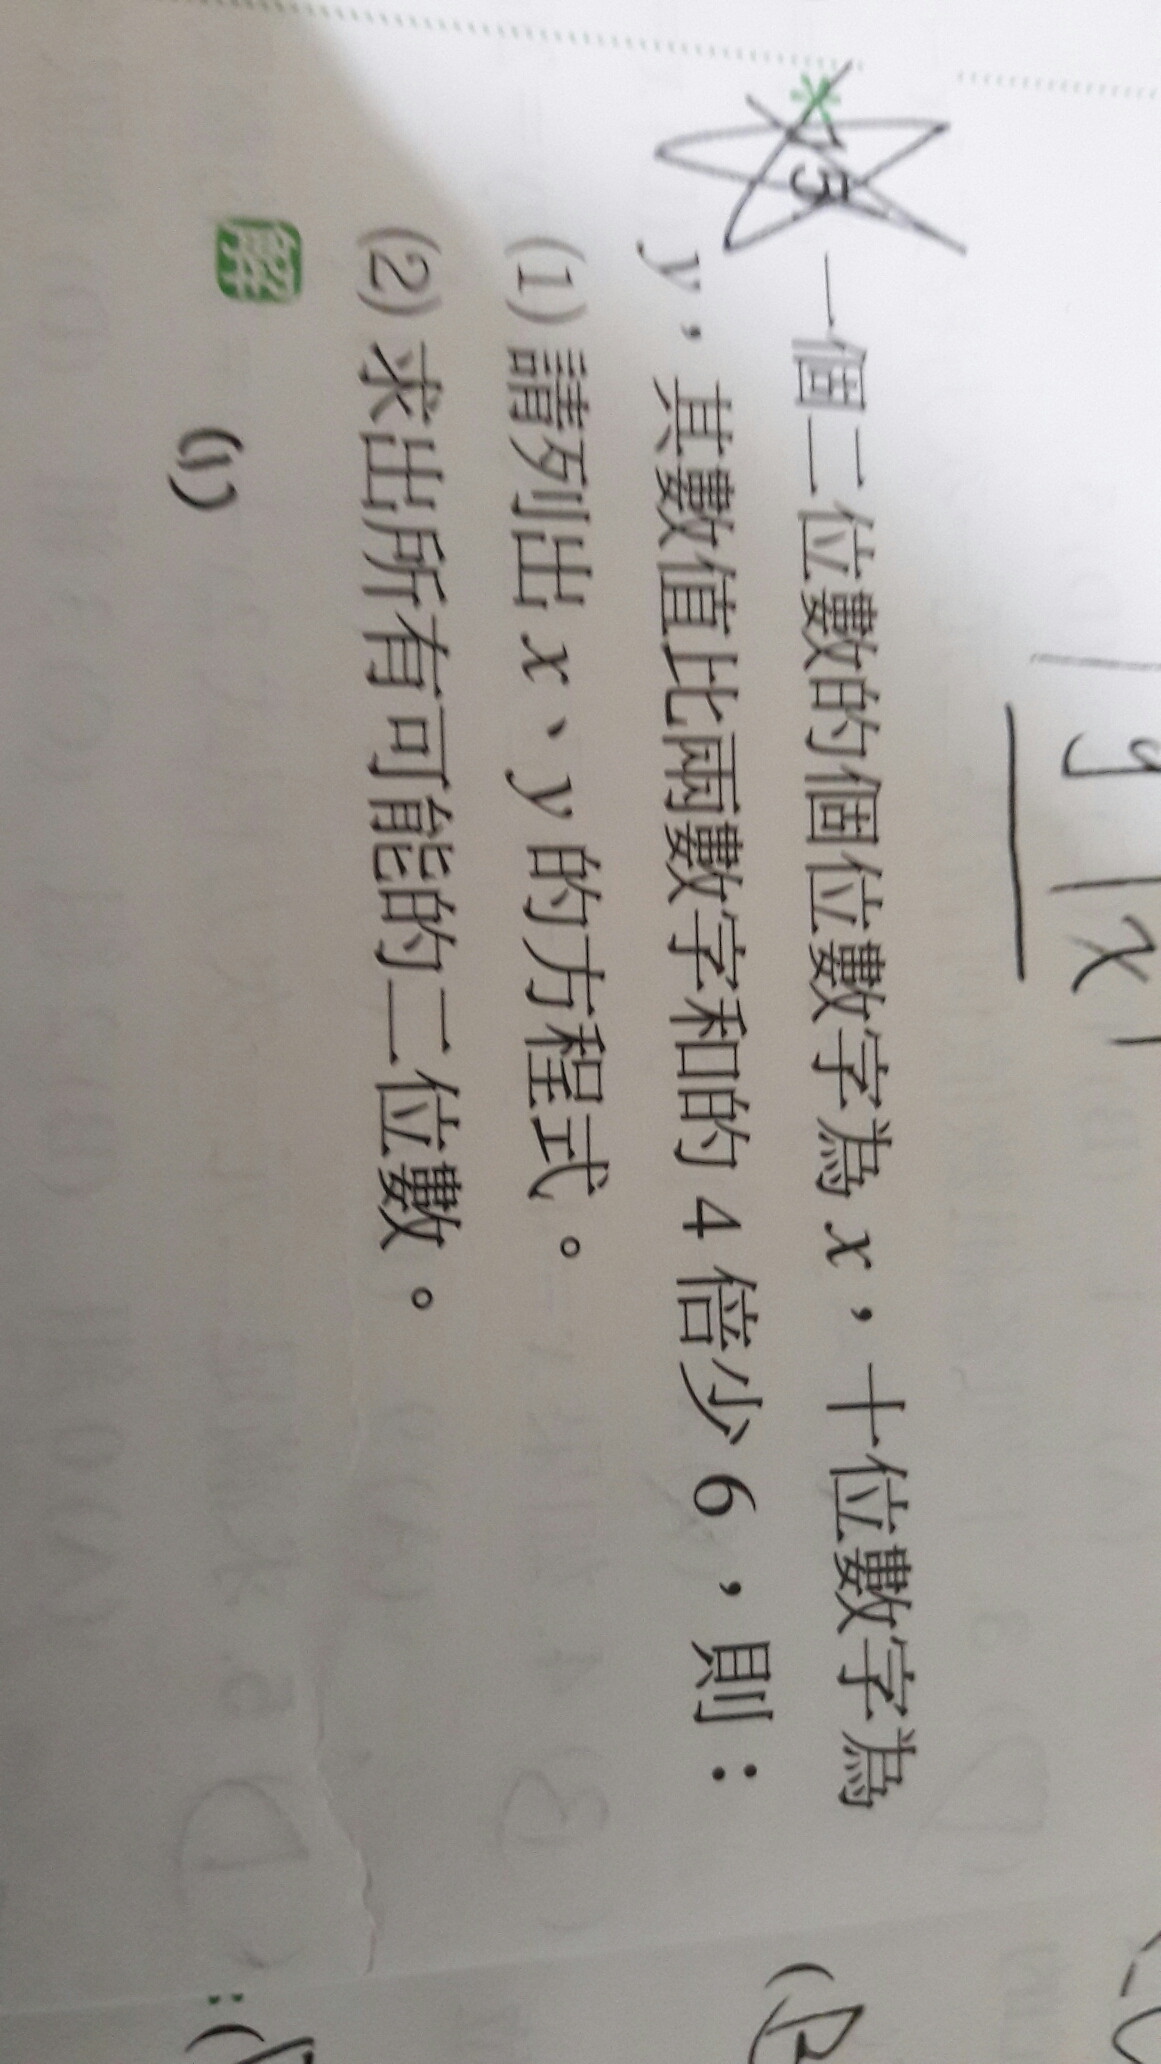 y x
*15 一個二位數的個位數字為 x，十位數字為
y，其數值比兩數字和的 4 倍少 6，則：
(1) 請列出 x、y 的方程式。
(2) 求出所有可能的二位數。
解
(1)